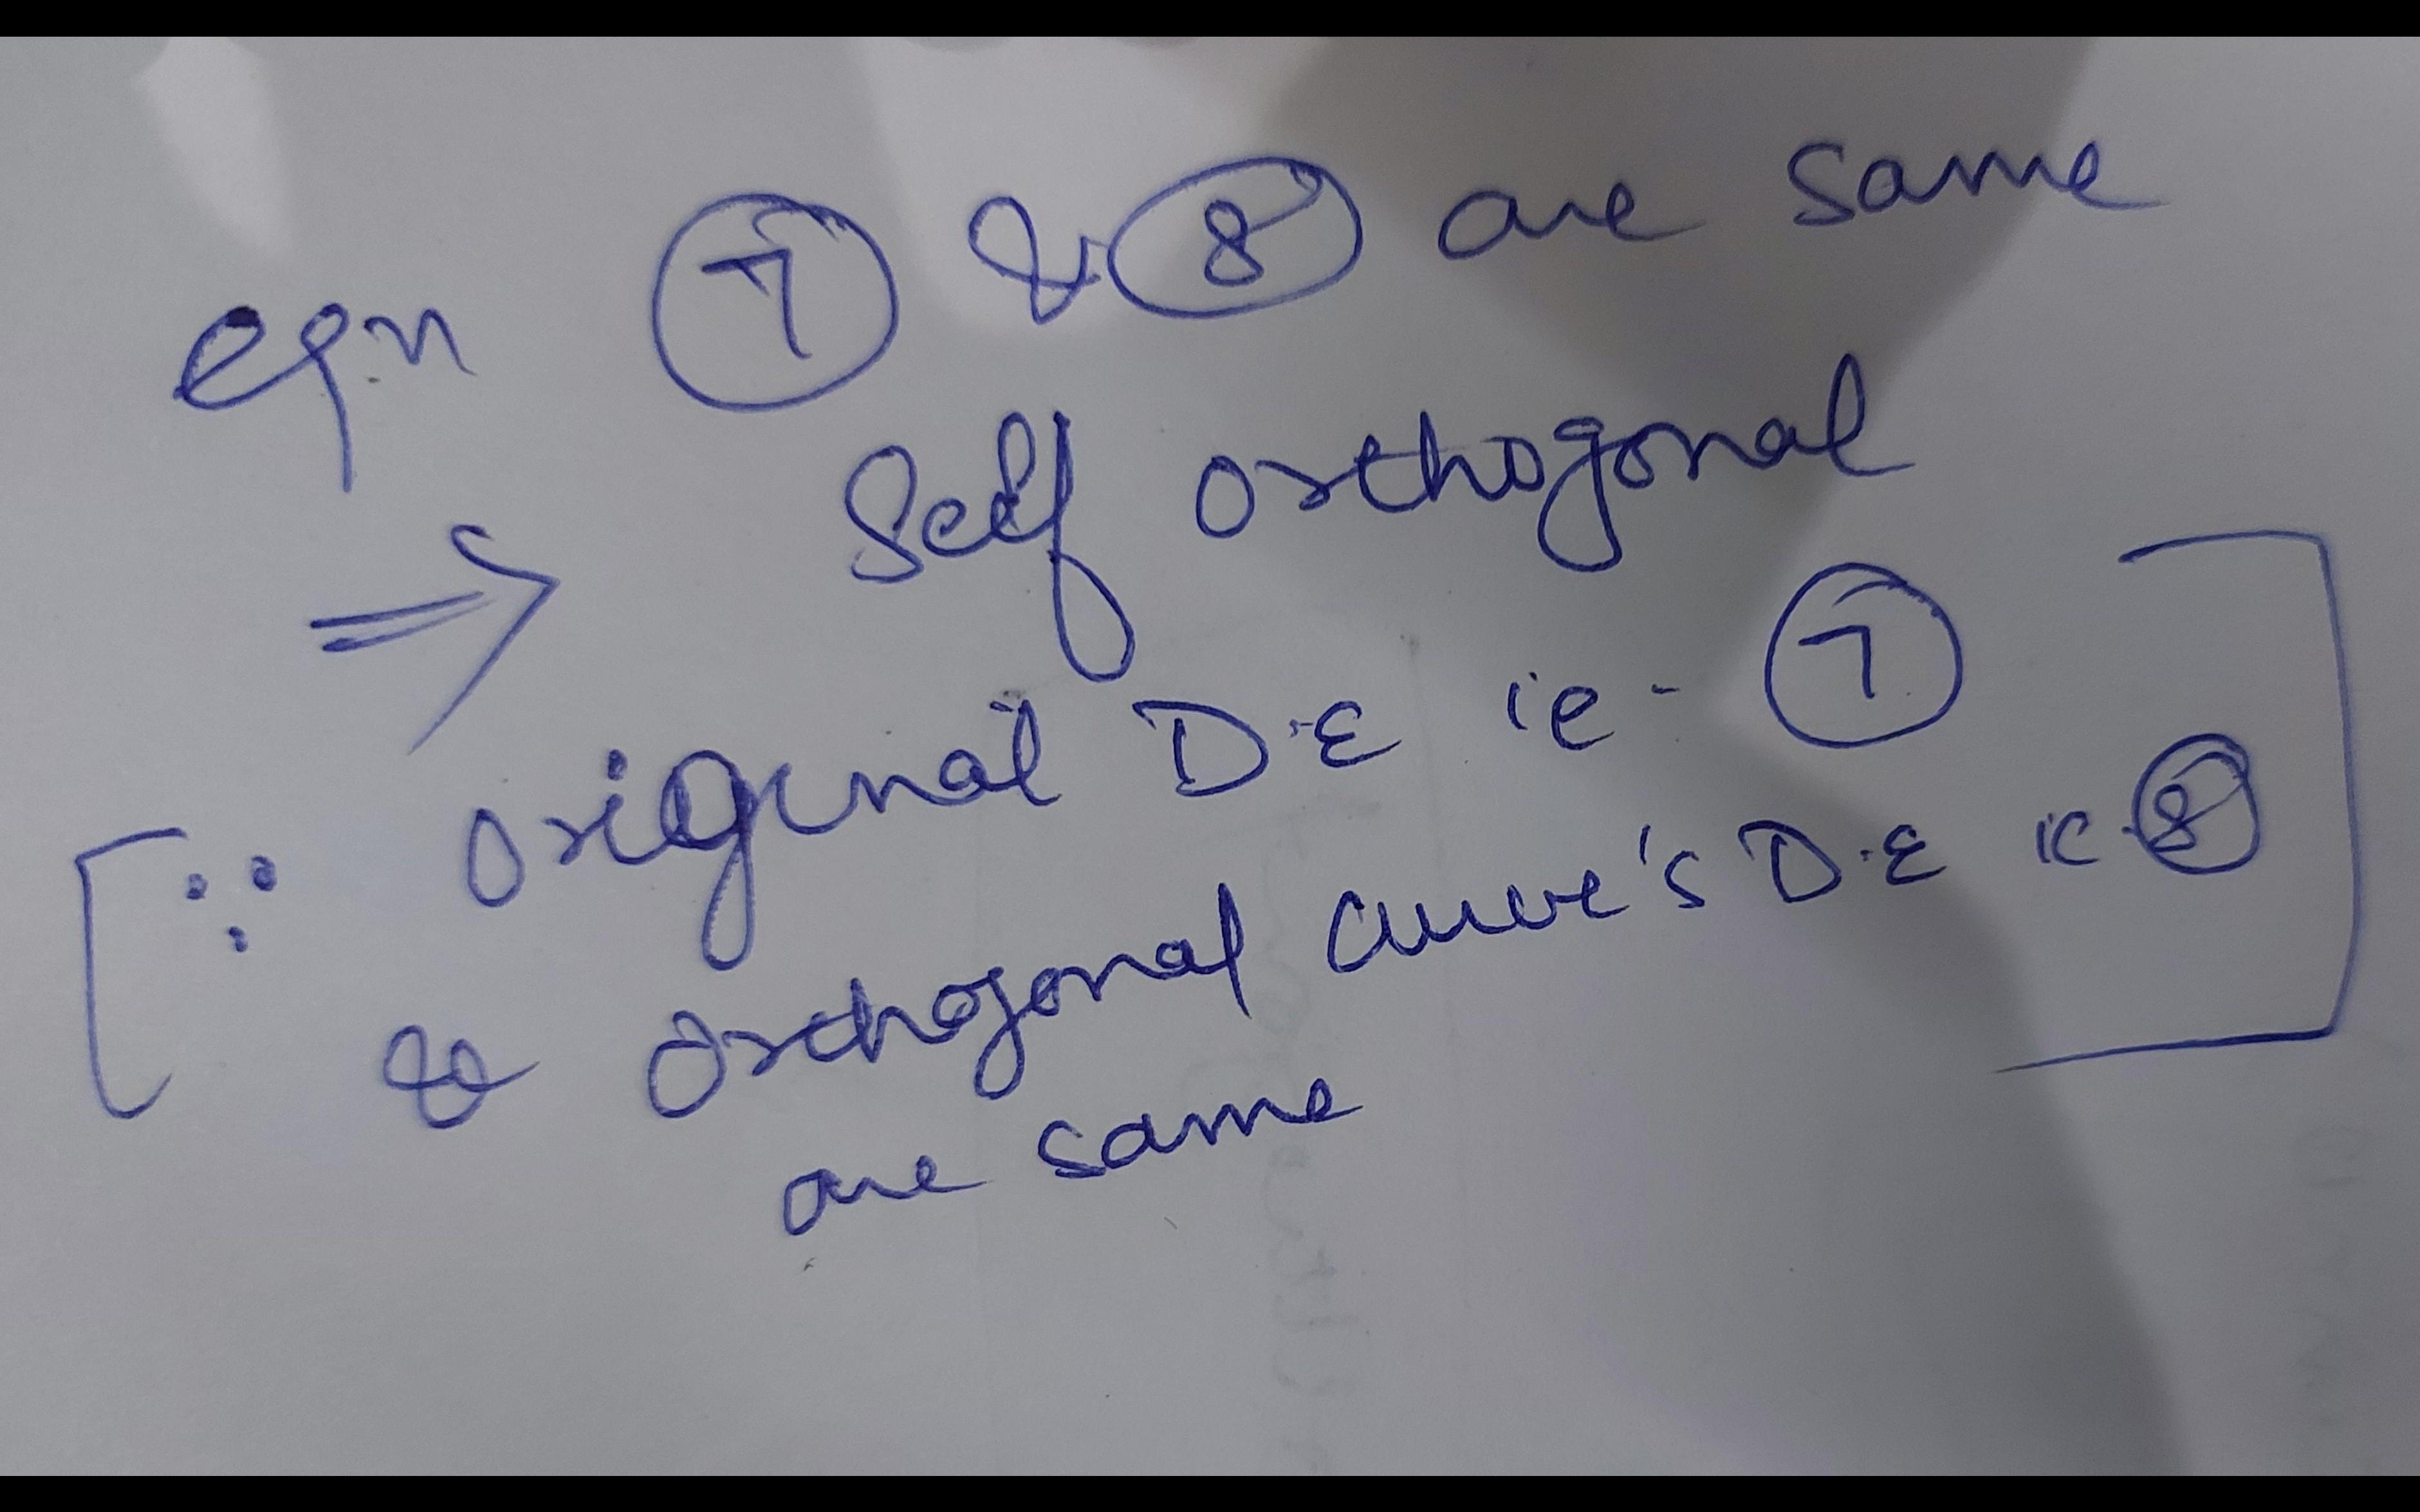 eqn ⑦ & ⑧ are same
⇒ Self orthogonal
[∵ original D.E ie. ⑦
& orthogonal curve's D.E ie. ⑧]
are same